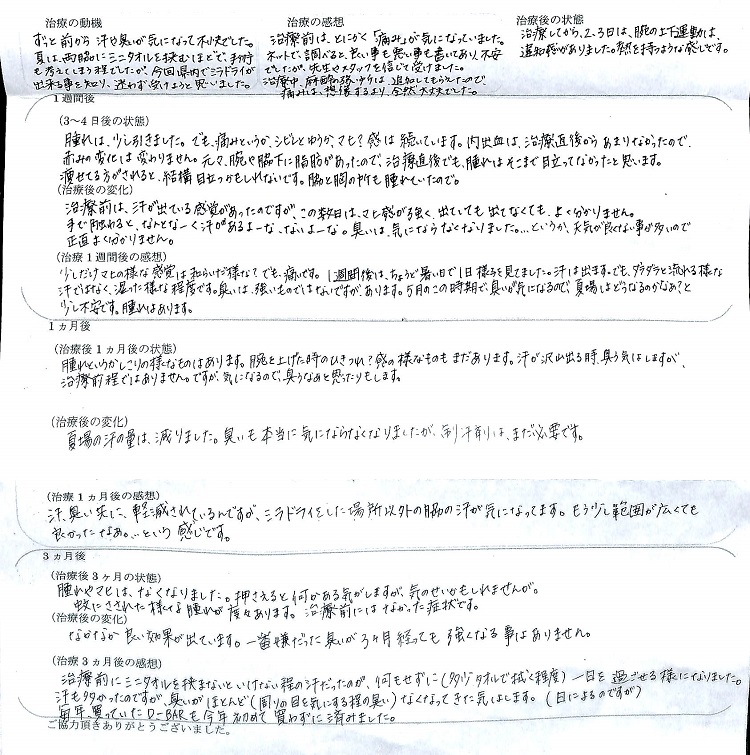 治療の動機
ずっと前から汗や臭いが気になって不快でした。
夏は、両脇にミニタオルを挟むほどで、手術
も考えてしまう程でしたが、今回県内でミラドライが
出来る事を知り、迷わず受けようと思いました。
治療の感想
治療前は、とにかく「痛み」が気になっていました。
ネットで調べると、良い事も悪い事も書いてあり、不安
でしたが、先生とスタッフを信じて受けました。
治療中、麻酔の強い分は、追加してもらったので
痛みは、想像するより、全然大丈夫でした。
治療後の状態
治療してから、2、3日は、腕の上下運動は、
違和感がありました。熱を持つような感じです。
1週間後
(3~4日後の状態)
腫れは、少し引きました。でも、痛みというか、シビレとゆうか、マヒ?感は続いています。内出血は、治療直後からあまりなかったので、
赤みの変化は変わりません。元々、腕や脇下に脂肪があったので、治療直後でも、腫れはそこまで目立ってなかったと思います。
痩せてる方がされると、結構目立つかもしれないです。脇と胸の所も腫れていたので。
(治療後の変化)
治療前は、汗が出ている感覚があったのですが、この数日は、マヒ感が強く、出ていても出てなくても、よく分かりません。
手で触れると、なんとなーく汗があるよーな、ないよーな。臭いは、気にならなくなりました。…というか、天気が良くない事が多いので
正直よく分かりません。
(治療1週間後の感想)
少しだけマヒの様な感覚は和らいだ様な?でも、痛いです。1週間後は、ちょうど暑い日で1日様子を見てました。汗は出ます。でも、ダラダラと流れる様な
汗ではなく、湿った様な程度です。臭いは、強いものではないですが、あります。5月のこの時期で臭いが気になるので、夏場はどうなるのかなぁ?と
少し不安です。腫れはあります。
1ヵ月後
(治療後1ヵ月後の状態)
腫れというかしこりの様なものはあります。腕を上げた時のひきつれ?感の様なものもまだあります。汗が沢山出る時、臭う気はしますが、
治療前程ではありません。ですが、気になるので、臭うなあと思ったりもします。
(治療後の変化)
夏場の汗の量は、減りました。臭いも本当に気にならなくなりましたが、制汗剤は、まだ必要です。
(治療1ヵ月後の感想)
汗、臭い共に、軽減されているんですが、ミラドライをした場所以外の脇の汗が気になってます。もう少し範囲が広くても
良かったなぁ。…という感じです。
3ヵ月後
(治療後3ヶ月の状態)
腫れやマヒは、なくなりました。押さえると何かある気がしますが、気のせいかもしれませんが。
蚊にさされた様な腫れが度々あります。治療前にはなかった症状です。
(治療後の変化)
なかなか良い効果が出ています。一番嫌だった臭いが3ヶ月経っても強くなる事はありません。
(治療3ヵ月後の感想)
治療前にミニタオルを挟まないといけない程の汗だったのが、何もせずに(タオルで拭く程度)一日を過ごせる様になりました。
汗も多かったのですが、臭いがほとんど(周りの目を気にする程の臭い)なくなってきた気はします。(日によるのですが)
毎年、買っていたD-BARも今年初めて買わずに済みました。
ご協力頂きありがとうございました。